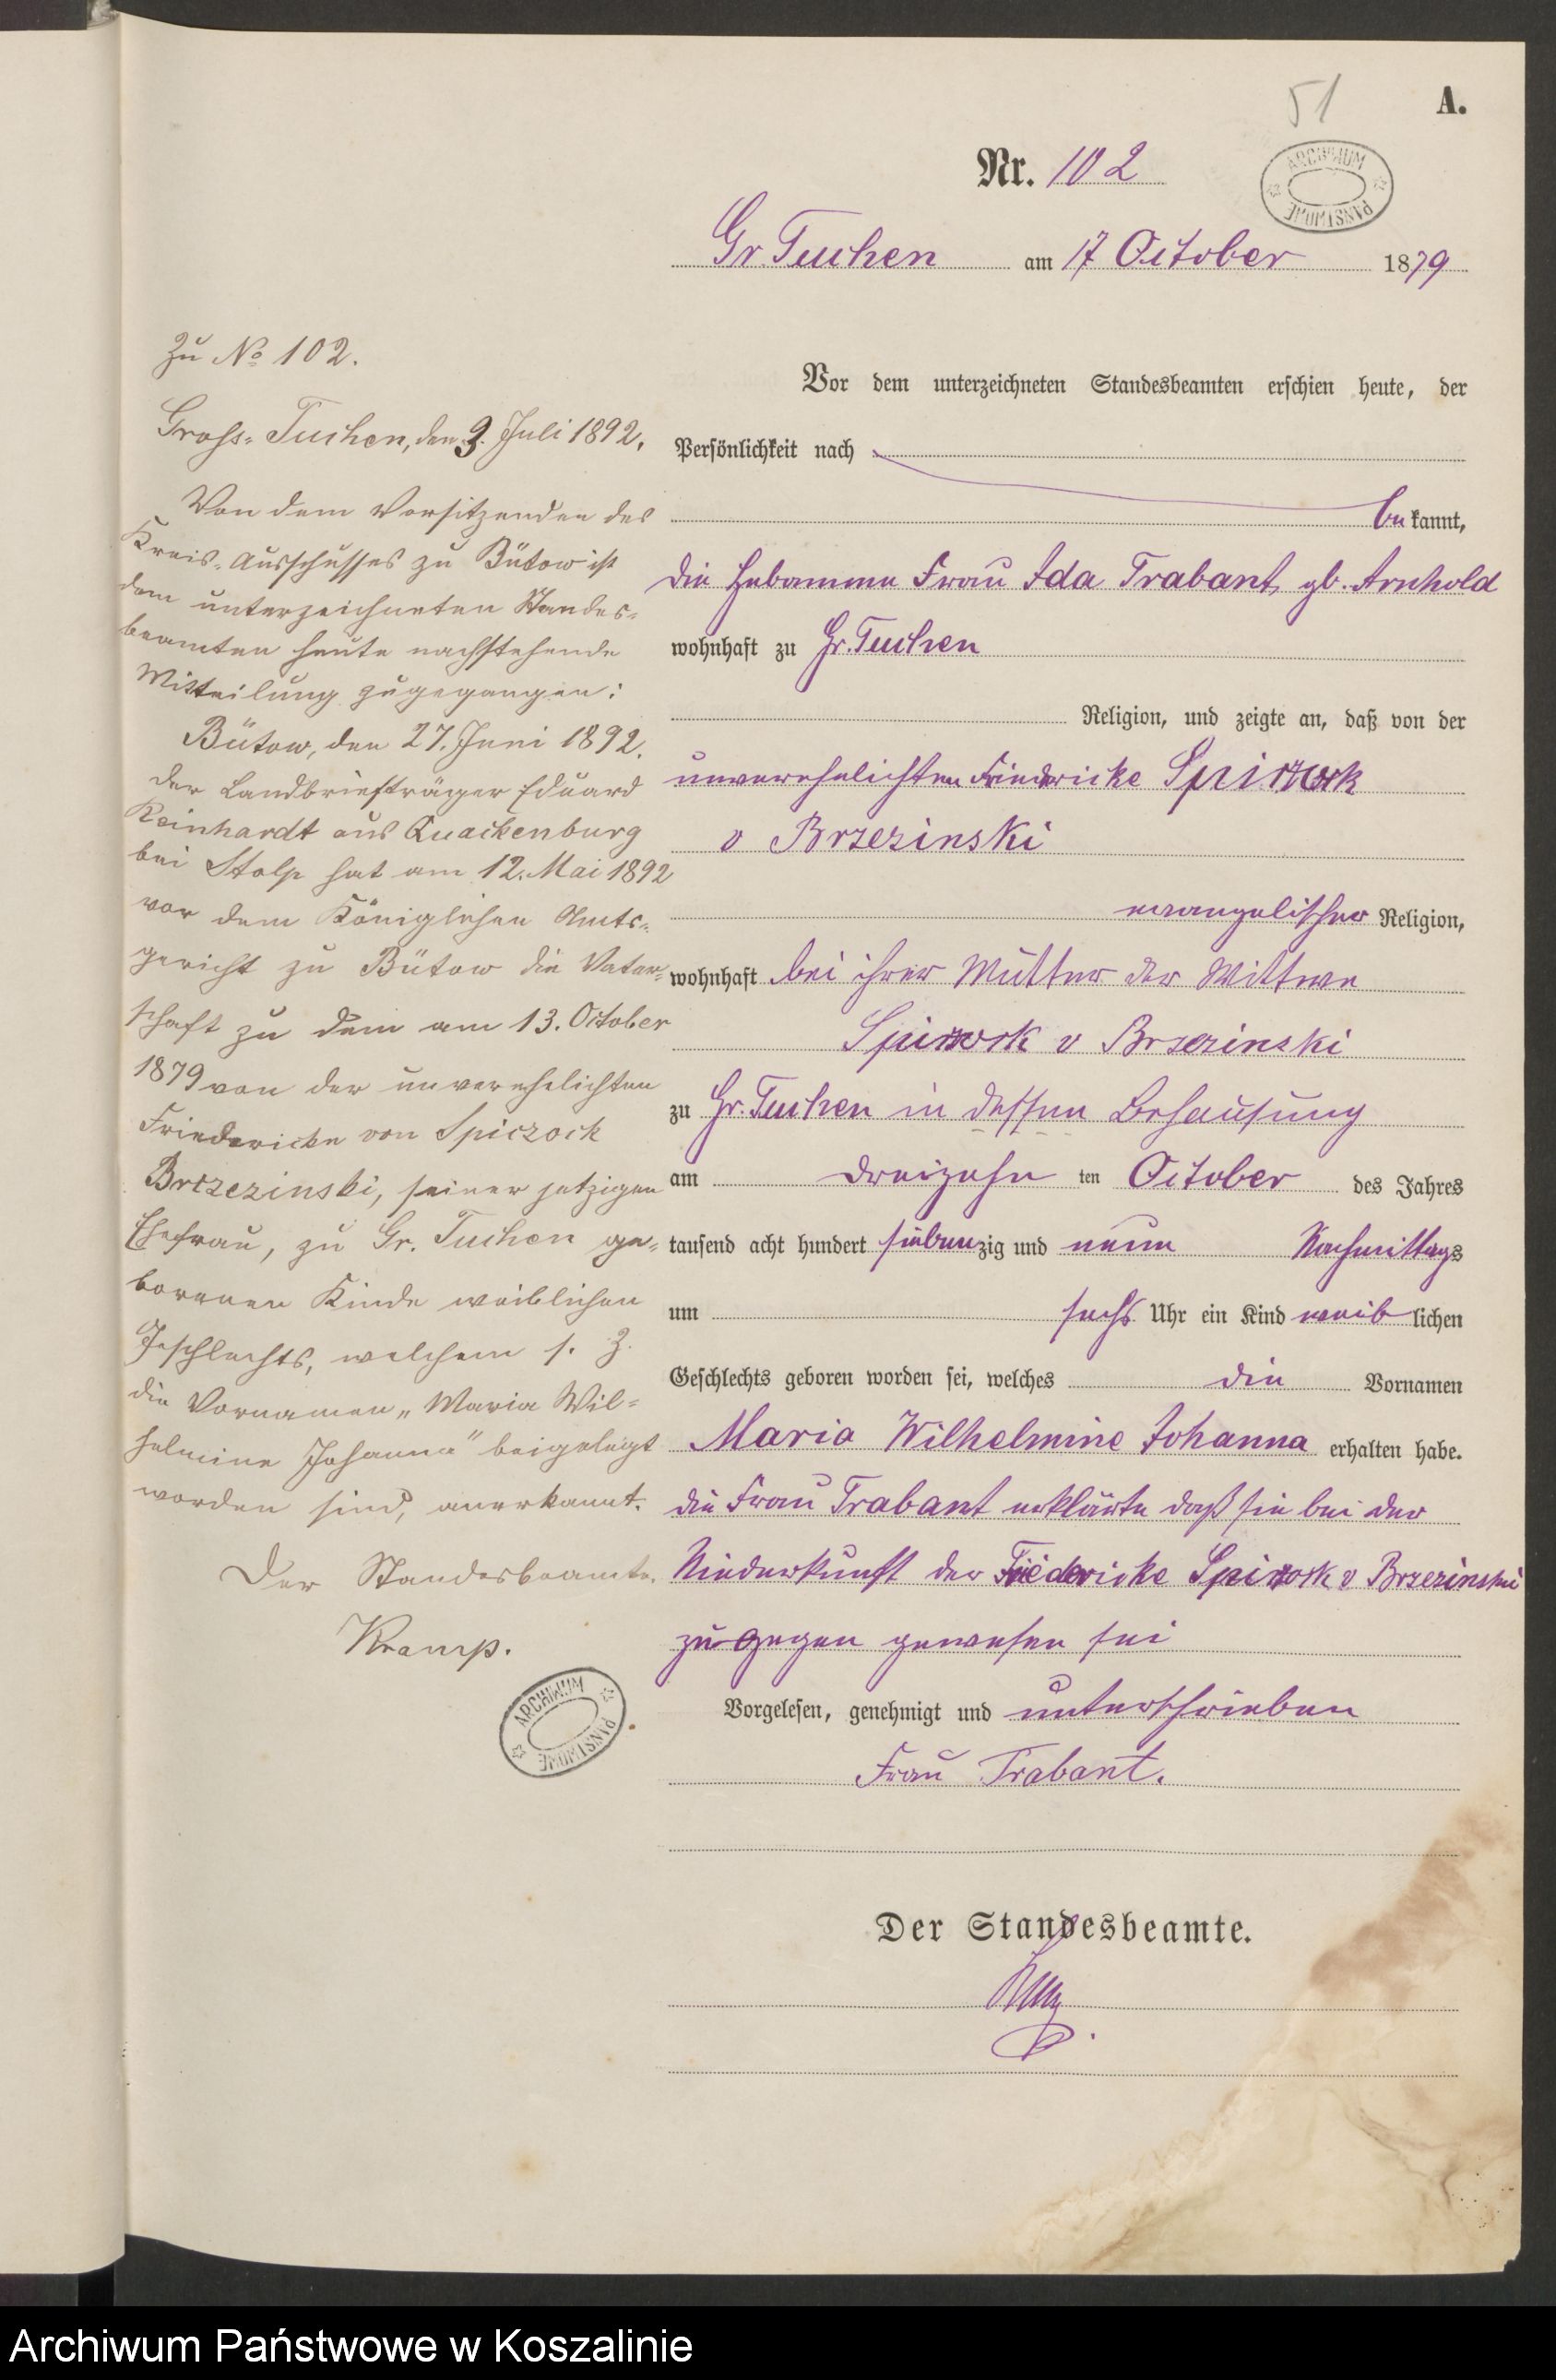 51
A.
Nr. 102
ARCHIWUM PAŃSTWOWE
Gr. Tuchen am 17 October 1879
Zu No 102.
Gross-Tuchen, den 9. Juli 1892.
Von dem Vorsitzenden des
Kreis-Ausschusses zu Bütow ist
dem unterzeichneten Standes-
beamten heute nachstehende
Mitteilung zugegangen:
Bütow, den 27. Juni 1892.
Der Landbriefträger Eduard
Reinhardt aus Quackenburg
bei Stolp hat am 12. Mai 1892
vor dem Königlichen Amts-
gericht zu Bütow die Vater-
schaft zu dem am 13. October
1879 von der unverehelichten
Friedericke von Spiczock
Brzezinski, seiner jetzigen
Ehefrau, zu Gr. Tuchen ge-
borenen Kinde weiblichen
Geschlechts, welchem s. Z.
die Vornamen „Maria Wil-
helmine Johanna" beigelegt
worden sind, anerkannt.
Der Standesbeamte.
Kramp.
ARCHIWUM PAŃSTWOWE
Vor dem unterzeichneten Standesbeamten erschien heute, der
Persönlichkeit nach
bekannt,
die Hebamme Frau Ida Trabant, gb. Arnhold
wohnhaft zu Gr. Tuchen
Religion, und zeigte an, daß von der
unverehelichten Friedericke
v Brzezinski
evangelischer Religion,
wohnhaft bei ihrer Mutter der Wittwe
v Brzezinski
zu Gr. Tuchen in dessen Behausung
am dreizehn ten October des Jahres
tausend acht hundert siebenzig und neun Nachmittags
um sechs Uhr ein Kind weiblichen
Geschlechts geboren worden sei, welches die Vornamen
Maria Wilhelmine Johanna erhalten habe.
die Frau Trabant erklärte daß sie bei der
Niederkunft der Friedericke v Brzezinski
zugegen gewesen sei
Vorgelesen, genehmigt und unterschrieben
Frau Trabant.
Der Standesbeamte.
Archiwum Państwowe w Koszalinie